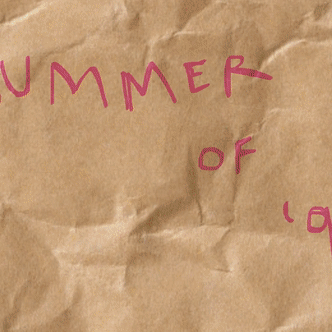 SUMMER
OF
'9